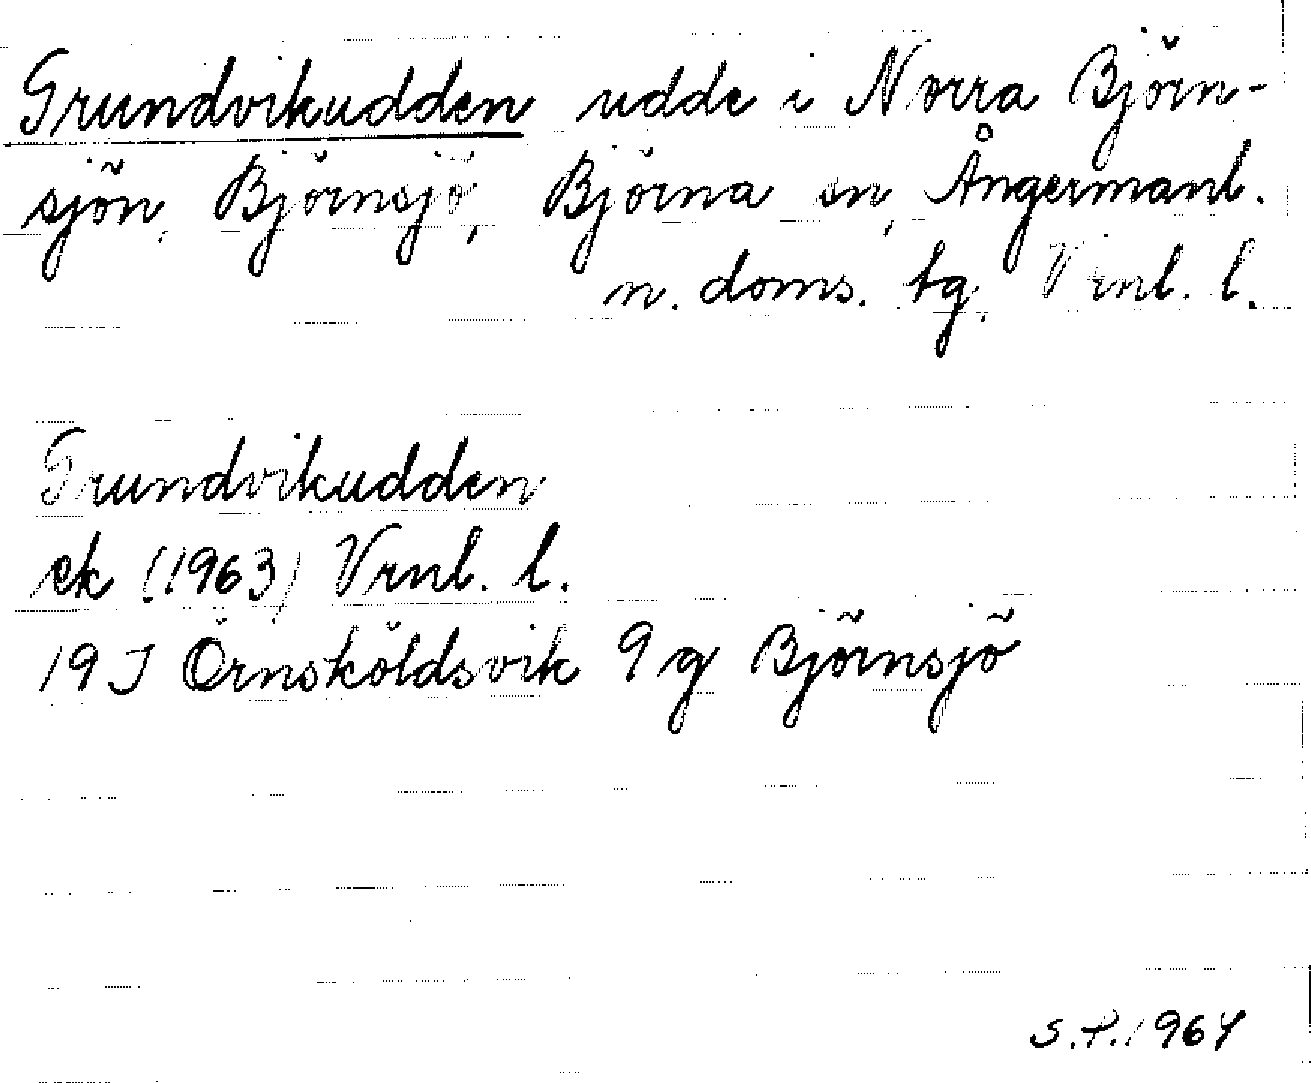 Grundvikudden udde i Norra Björn-
sjön, Björnsjö, Björna sn, Ångermanl.
n. doms. tg. Vrnl. l.
Grundvikudden
ek (1963) Vrnl. l.
19 J Örnsköldsvik 9 g Björnsjö
S.P. 1964